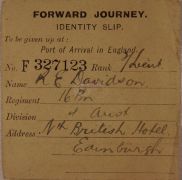 FORWARD JOURNEY.
IDENTITY SLIP.
To be given up at:
Port of Arrival in England.
No. F 327123 Rank Lieut
Name R E Davidson
Regiment 16
Division
Address Nth British Hotel.
Edinburgh